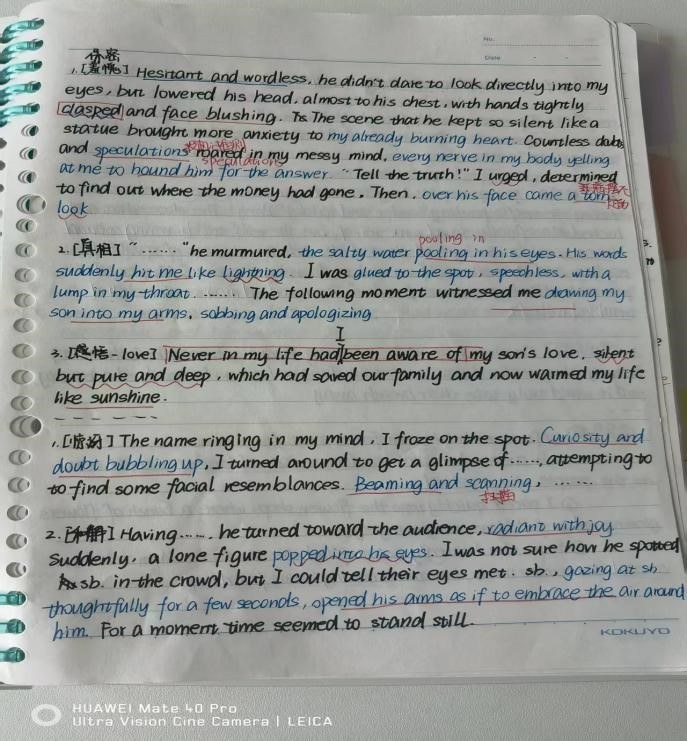 No.
Date
1.[羞愧] Hesitant and wordless, he didn't dare to look directly into my
eyes, but lowered his head, almost to his chest, with hands tightly
clasped and face blushing. The scene that he kept so silent like a
statue brought more anxiety to my already burning heart. Countless
and speculations roared in my messy mind, every nerve in my body yelling
speculations
at me to hound him for the answer. "Tell the truth!" I urged, determined
to find out where the money had gone. Then, over his face came a torn
look
pooling in
2.[真相] "......" he murmured, the salty water pooling in his eyes. His words
suddenly hit me like lightning. I was glued to the spot, speechless, with a
lump in my throat. ...... The following moment witnessed me drawing my
son into my arms, sobbing and apologizing
I
3.[感悟-love] Never in my life had been aware of my son's love, silent
but pure and deep, which had saved our family and now warmed my life
like sunshine.
1.[惊讶] The name ringing in my mind, I froze on the spot. Curiosity and
doubt bubbling up, I turned around to get a glimpse of ......, attempting to
to find some facial resemblances. Beaming and scanning, ......
扫描
2.[ ] Having ......, he turned toward the audience, radiant with joy
Suddenly, a lone figure popped into his eyes. I was not sure how he spotted
sb. in the crowd, but I could tell their eyes met. sb., gazing at sb
thoughtfully for a few seconds, opened his arms as if to embrace the air around
him. For a moment time seemed to stand still.
KOKUYO
HUAWEI Mate 40 Pro
Ultra Vision Cine Camera | LEICA